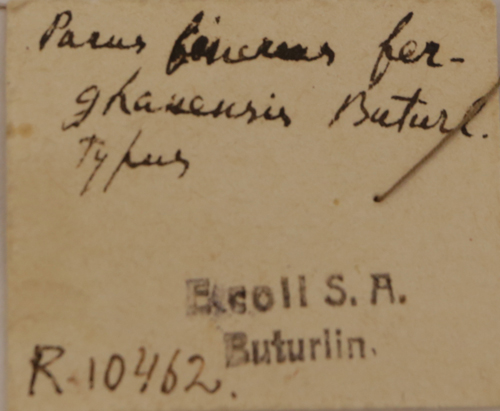 Parus cinereus fer-
ghanensis Buturl.
Typus
Ex coll S. A.
Buturlin.
R-10462.